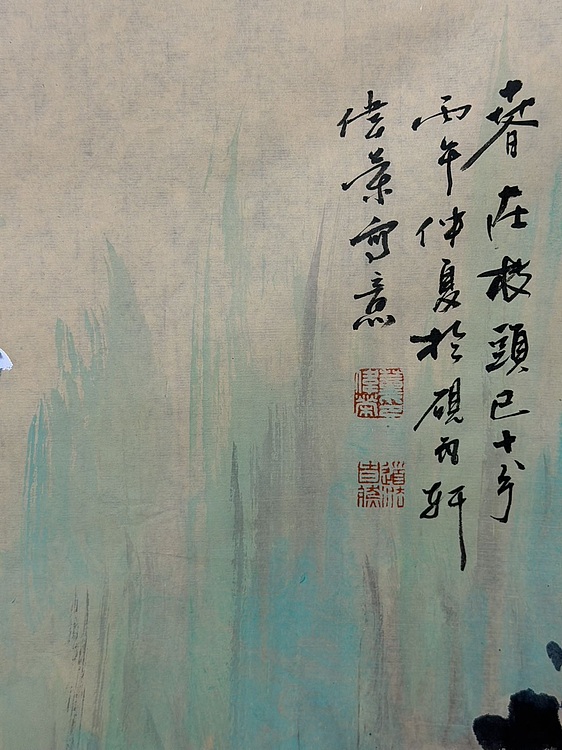 春在枝頭已十分
丙午仲夏於硯軒
偉荣寫意